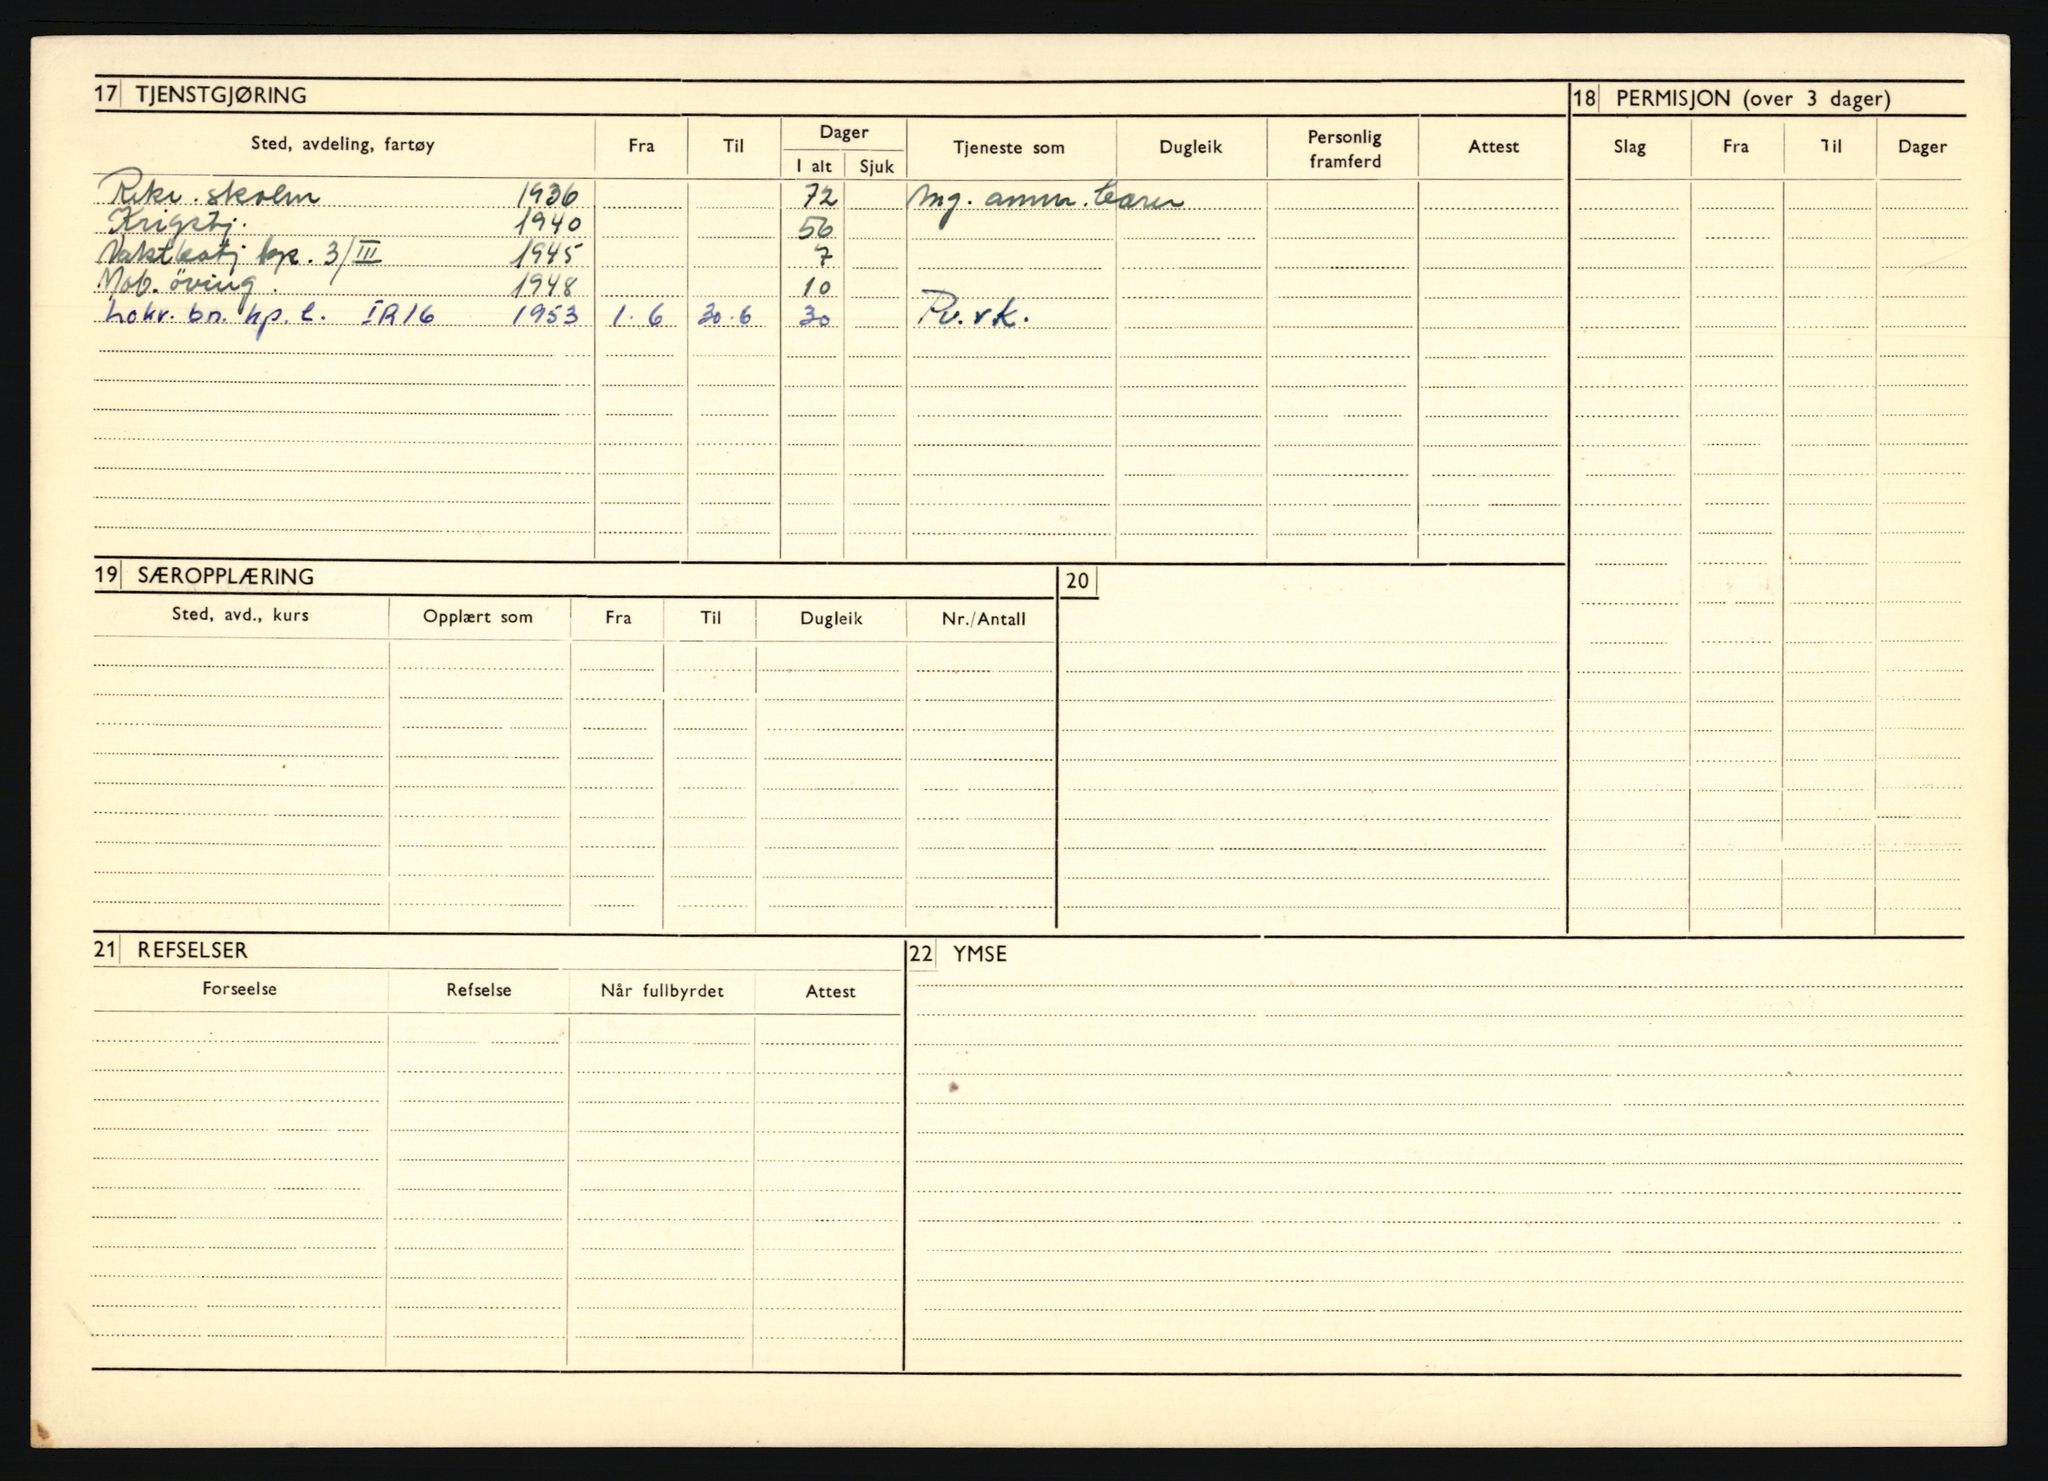 17 TJENSTGJØRING
18 PERMISJON (over 3 dager)
Sted, avdeling, fartøy Fra Til Dager Tjeneste som Dugleik Personlig framferd Attest Slag Fra Til Dager
I alt Sjuk
Rekr. skolen 1936 72 Mg. amm. bærer
Krigstj. 1940 56
kp. 3/III 1945 7
Mob. öving. 1948 10
Lokv. bn. kp. C. IR16 1953 1.6 30.6 30 Pv.rk.
19 SÆROPPLÆRING
20
Sted, avd., kurs Opplært som Fra Til Dugleik Nr./Antall
21 REFSELSER
22 YMSE
Forseelse Refselse Når fullbyrdet Attest